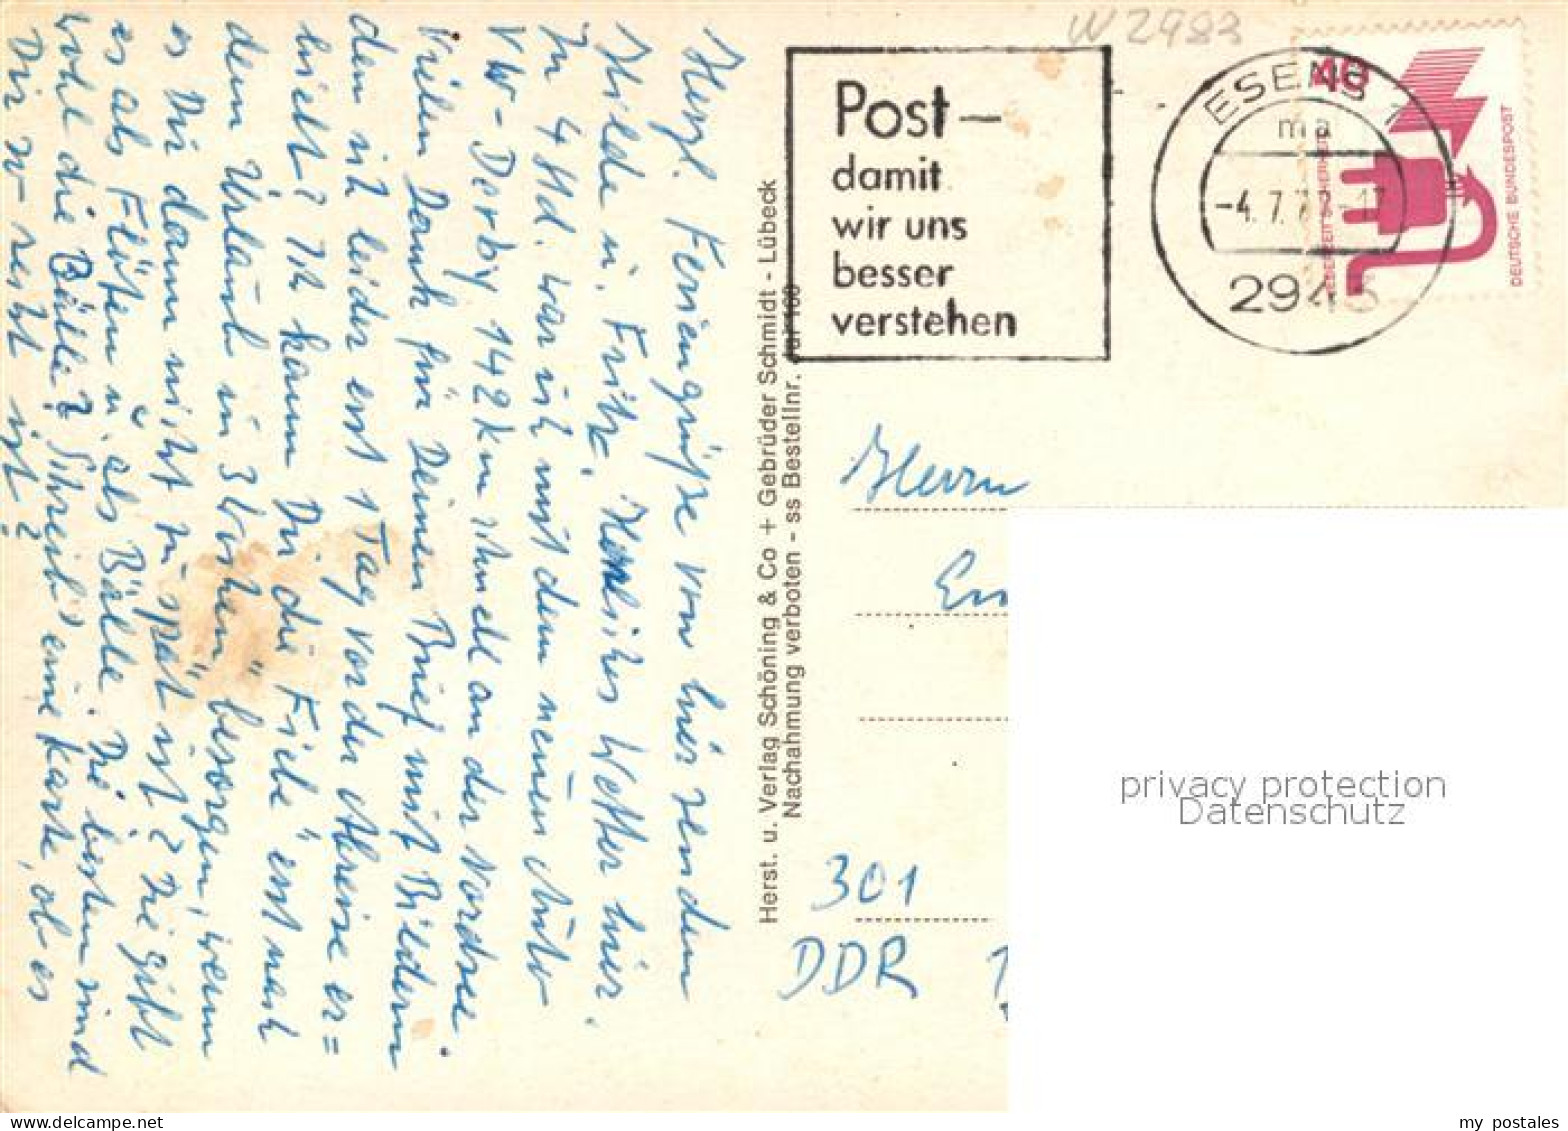 W 2983
Post –
damit
wir uns
besser
verstehen
ESENS 1
ma
-4.7.7
294
40
JEDERZEIT SICHERHEIT
DEUTSCHE BUNDESPOST
Herzl. Feriengrüße von hier senden
Hilde u. Fritz. Herrliches Wetter hier.
In 4 Std. war ich mit dem neuen Auto
VW-Derby 142 km schnell an der Nordsee.
Vielen Dank für Deinen Brief mit Bildern
den ich leider erst 1 Tag vor der Abreise er=
hielt? Ich kann Dir die „Fiebe" erst nach
dem Urlaub in 3 Wochen besorgen, wenn
es Dir dann nicht zu spät ist? Die gibt
es als Flöten u. als Bälle. Die besten sind
wohl die Bälle? Schreib' eine Karte, ob es
Dir so recht ist?
Herst. u. Verlag Schöning & Co + Gebrüder Schmidt - Lübeck
Nachahmung verboten - ss Bestellnr.
Herrn
301
DDR
privacy protection
Datenschutz
my postales